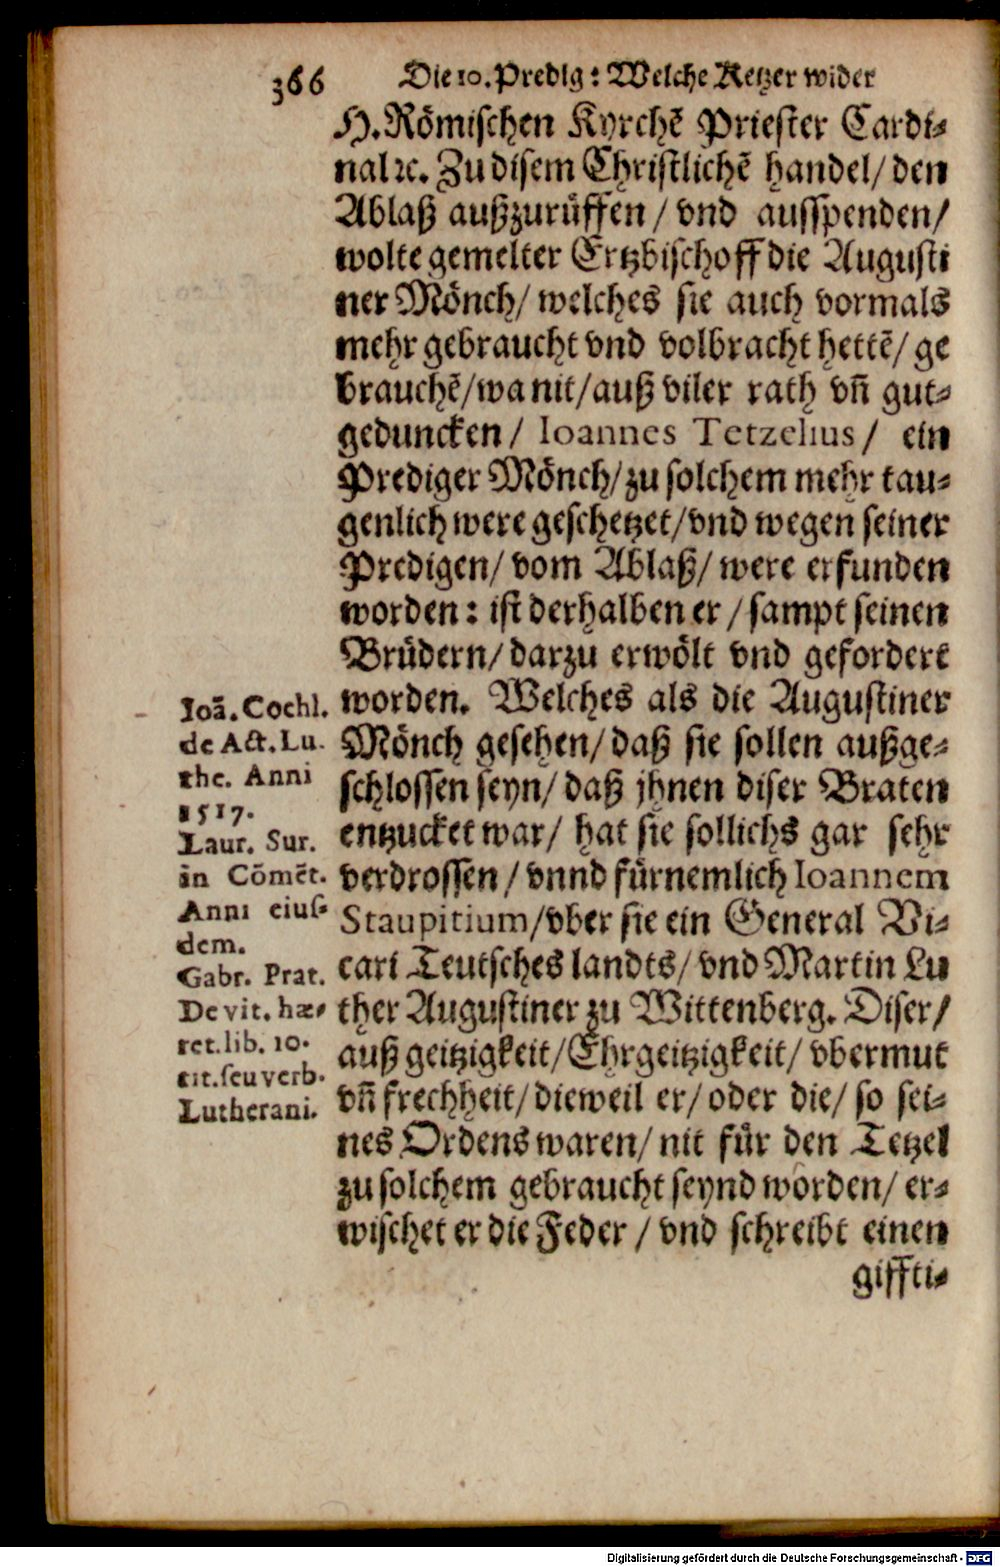 366 Die 10. Predig: Welche Ketzer wider
H. Römischen Kyrchẽ Priester Cardi-
nal ꝛc. Zu disem Christlichẽ handel/ den
Ablaß außzurüffen/ vnd ausspenden/
wolte gemelter Ertzbischoff die Augusti
ner Mönch/ welches sie auch vormals
mehr gebraucht vnd volbracht hettẽ/ ge
brauchẽ/ wa nit/ auß viler rath vñ gut-
geduncken/ Ioannes Tetzelius/ ein
Prediger Mönch/ zu solchem mehr tau-
genlich were geschetzet/ vnd wegen seiner
Predigen/ vom Ablaß/ were erfunden
worden: ist derhalben er/ sampt seinen
Brüdern/ darzu erwölt vnd gefordert
worden. Welches als die Augustiner
Mönch gesehen/ daß sie sollen außge-
schlossen seyn/ daß jhnen diser Braten
entzucket war/ hat sie sollichs gar sehr
verdrossen/ vnnd fürnemlich Ioannem
Staupitium/ vber sie ein General Vi-
cari Teutsches landts/ vnd Martin Lu
ther Augustiner zu Wittenberg. Diser/
auß geitzigkeit/ Ehrgeitzigkeit/ vbermut
vñ frechheit/ dieweil er/ oder die/ so sei-
nes Ordens waren/ nit für den Tetzel
zu solchem gebraucht seynd worden/ er-
wischet er die Feder/ vnd schreibt einen
giffti-
Ioã. Cochl.
de Act. Lu.
the. Anni
1517.
Laur. Sur.
in Cõmẽt.
Anni eius-
dem.
Gabr. Prat.
De vit. hæ-
ret. lib. 10.
tit. seu verb.
Lutherani.
Digitalisierung gefördert durch die Deutsche Forschungsgemeinschaft - DFG